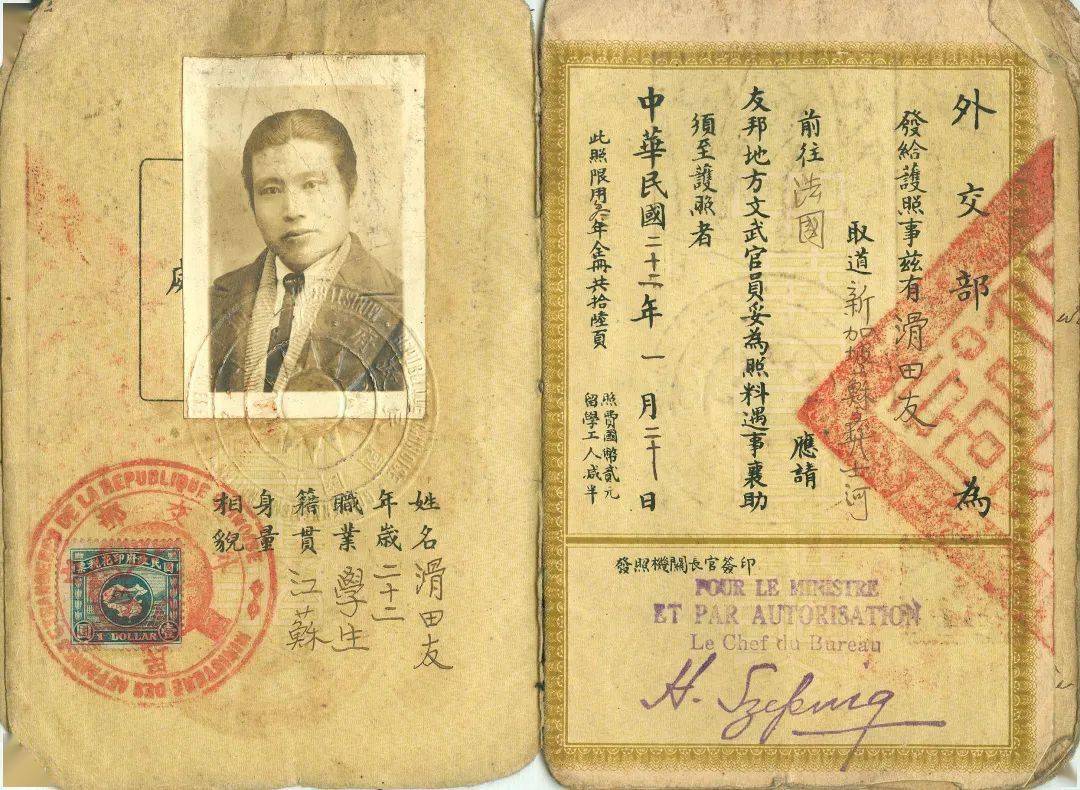 外交部為
發給護照事茲有滑田友
取道新加坡蘇彝士河
前往法國 應請
友邦地方文武官員妥為照料遇事襄助
須至護照者
中華民國二十二年一月二十日
此照限用叁年全冊共拾陸頁
照費國幣貳元
留學工人減半
發照機關長官簽印
POUR LE MINISTRE
ET PAR AUTORISATION
Le Chef du Bureau
姓名滑田友
年歲二十二
職業學生
籍貫江蘇
身量
相貌
MINISTERE DES AFFAIRES ETRANGERES DE LA REPUBLIQUE CHINOISE
國民政府印花稅票
1 DOLLAR